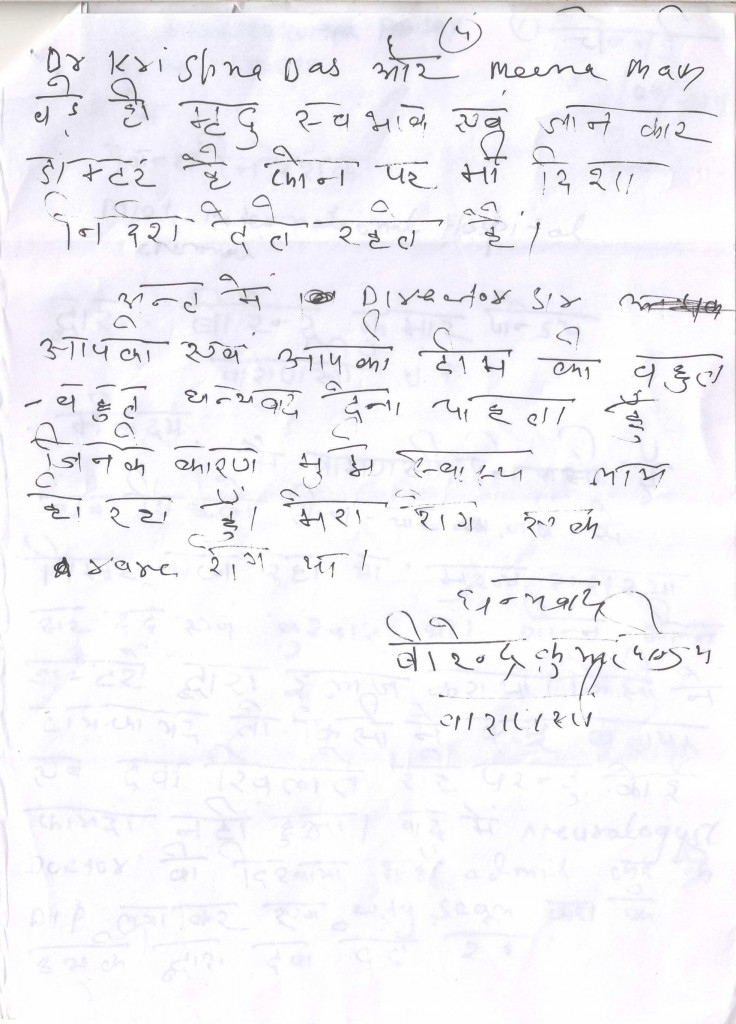 (५)
Dr Krishna Das और Meena Mam
बड़े ही मृदु स्वभाव एवं जानकार
डाक्टर है फोन पर भी दिशा
निर्देश देते रहते है।
अन्त में Director सर
आपको एवं आपकी टीम को बहुत
-बहुत धन्यवाद देना चाहता हूँ
जिनके कारण मुझे स्वास्थ्य लाभ
हो रहा है। मेरा रोग एक
rare रोग था।
धन्यवाद
वीरेन्द्र कुमार पाण्डेय
वाराणसी